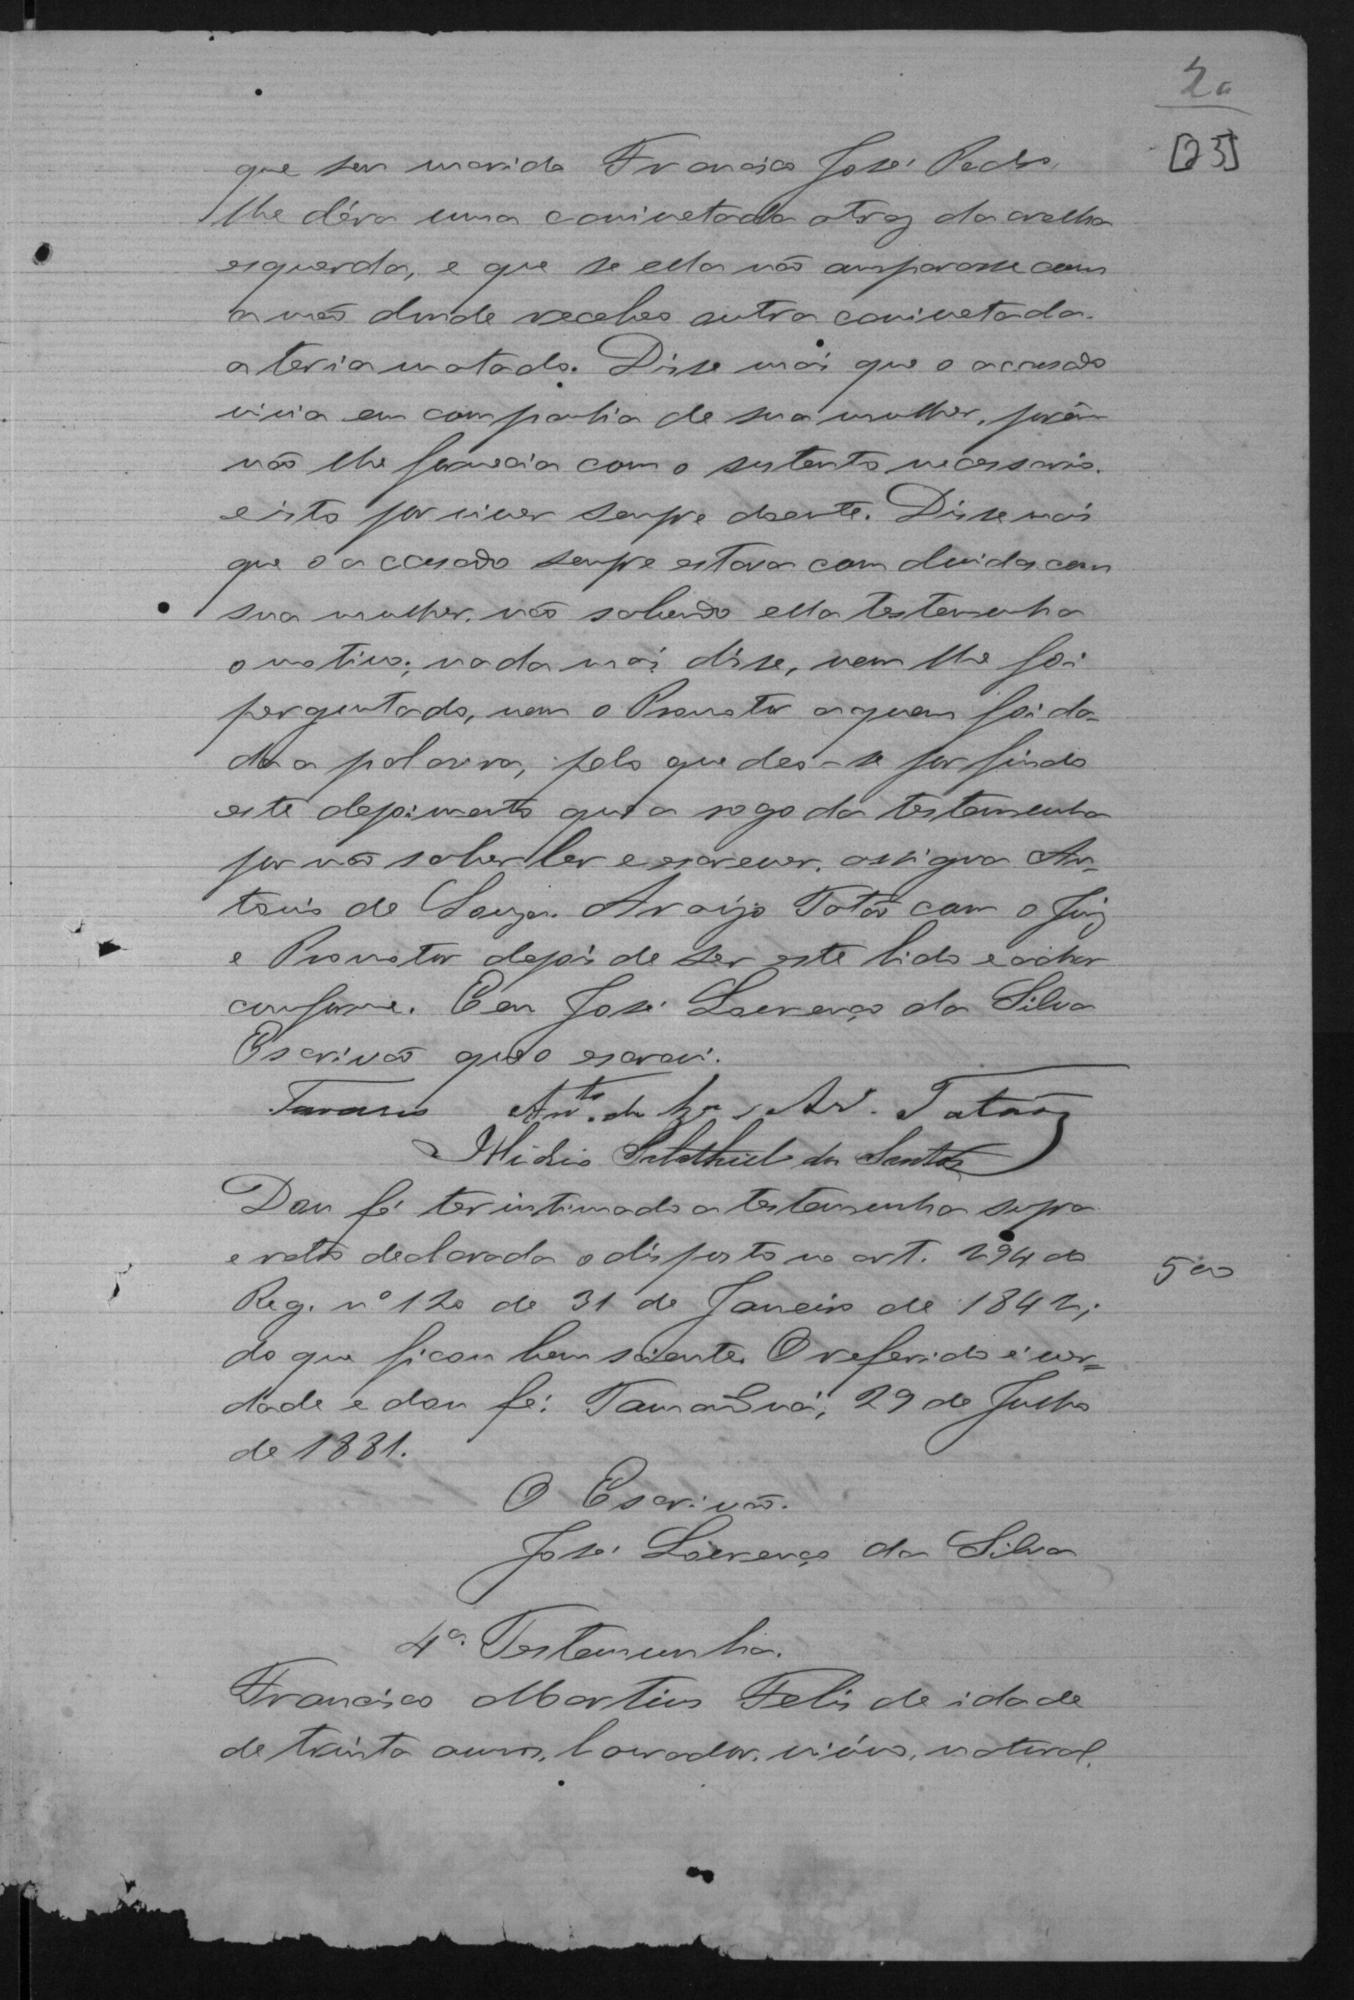 20
[23]
que seu marido Francisco José Pedro,
lhe déra uma canivetada atraz da orelha
esquerda, e que se ella não amparasse com
a mão donde recebeo outra canivetada.
a teria matado. Disse mais que o accusado
vivia em companhia de sua mulher, porém
não lhe fornecia com o sustento necessario.
e isto por viver sempre doente. Disse mais
que o accusado sempre estava com duvidas com
sua mulher, não sabendo ella testemunha
o motivo; nada mais disse, nem lhe foi
perguntado, nem o Promotor a quem foi da-
da a palavra, pelo que deo-se por findo
este depoimento que a rogo da testemunha
por não saber ler e escrever, assigna An-
tonio de Souza Araújo Tatão com o Juiz
e Promotor depois de ser este lido e achar
conforme. Eu José Lourenço da Silva
Escrivão que o escrevi.
Tavares Antº. de Sza Arº. Tatão
Salathiel dos Santos
Dou fé ter intimado a testemunha supra
e retro declarada o disposto no art. 294 do
Reg. nº 120 de 31 de Janeiro de 1842;
do que ficou bem sciente. O referido é ver=
dade e dou fé. Tamanduá, 29 de Julho
500
de 1881.
O Escrivão.
José Lourenço da Silva
4ª. Testemunha.
Francisco Martins Felis de idade
de trinta annos, lavrador, viúvo, natural,